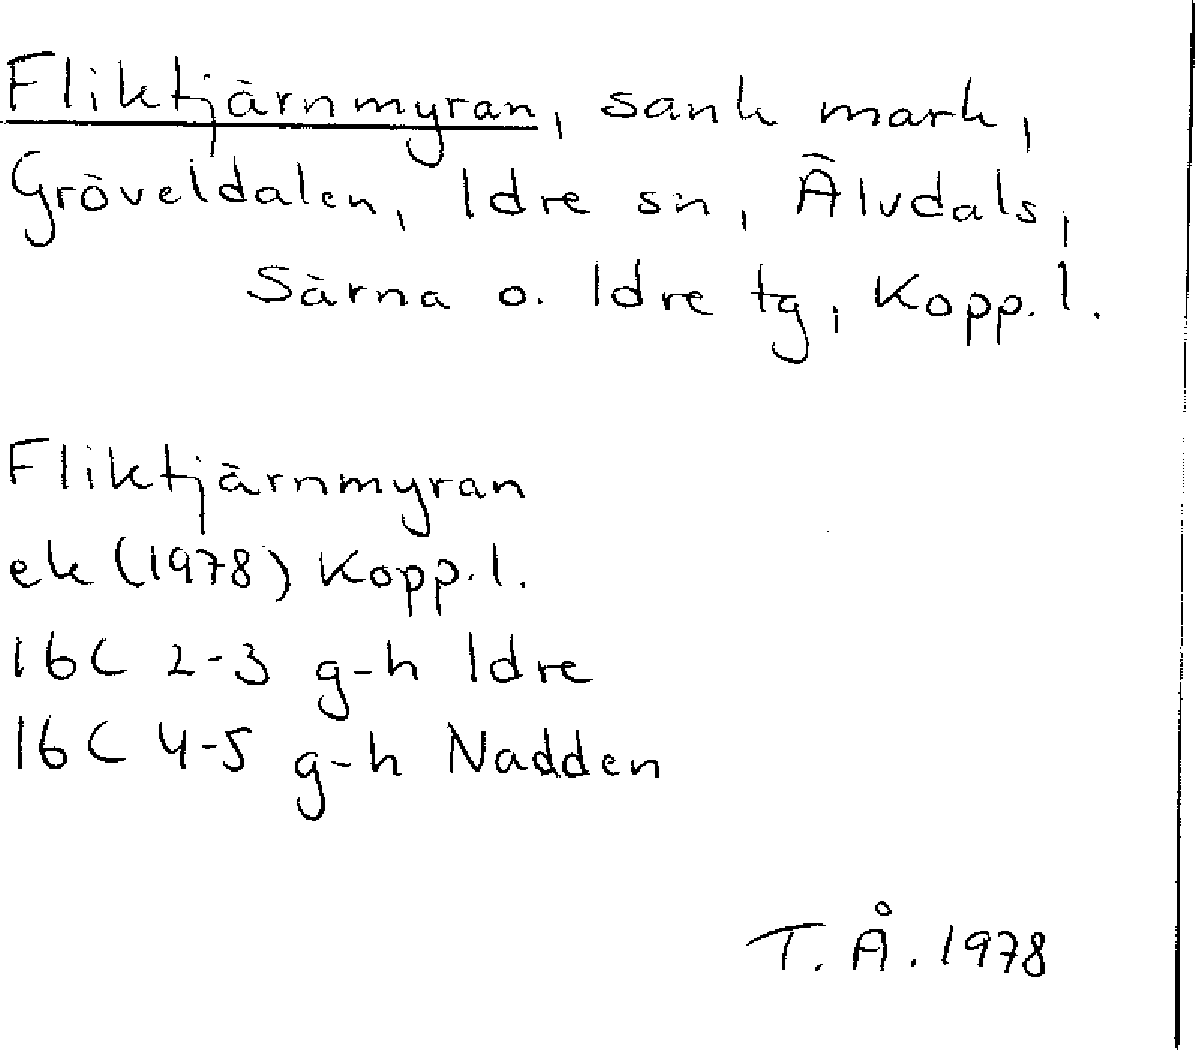 Fliktjärnmyran, sank mark,
Gröveldalen, Idre sn, Älvdals,
Särna o. Idre tg, Kopp. l.
Fliktjärnmyran
ek (1978) Kopp. l.
16C 2-3 g-h Idre
16C 4-5 g-h Nadden
T. Å. 1978